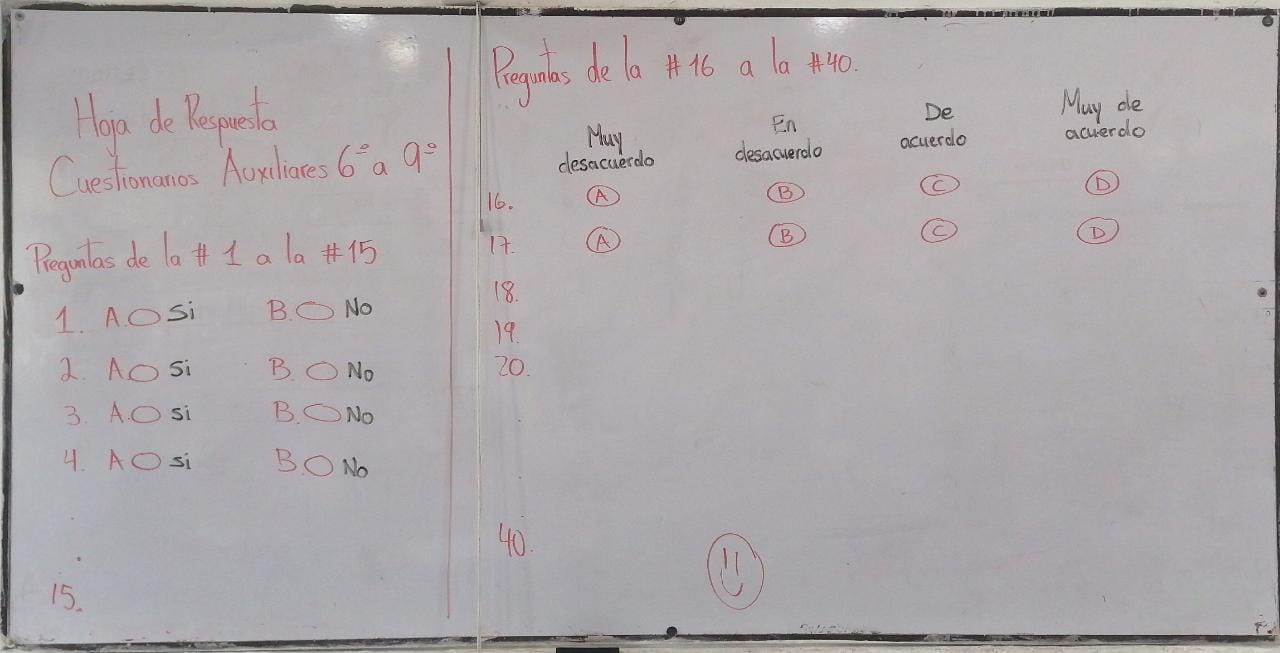 Hoja de Respuesta
Cuestionarios Auxiliares 6° a 9°
Preguntas de la # 1 a la #15
1. A. Si B. No
2. A Si B. No
3. A. Si B. No
4. A Si B. No
15.
Preguntas de la #16 a la #40.
Muy desacuerdo En desacuerdo De acuerdo Muy de acuerdo
16. A B C D
17. A B C D
18.
19.
20.
40.